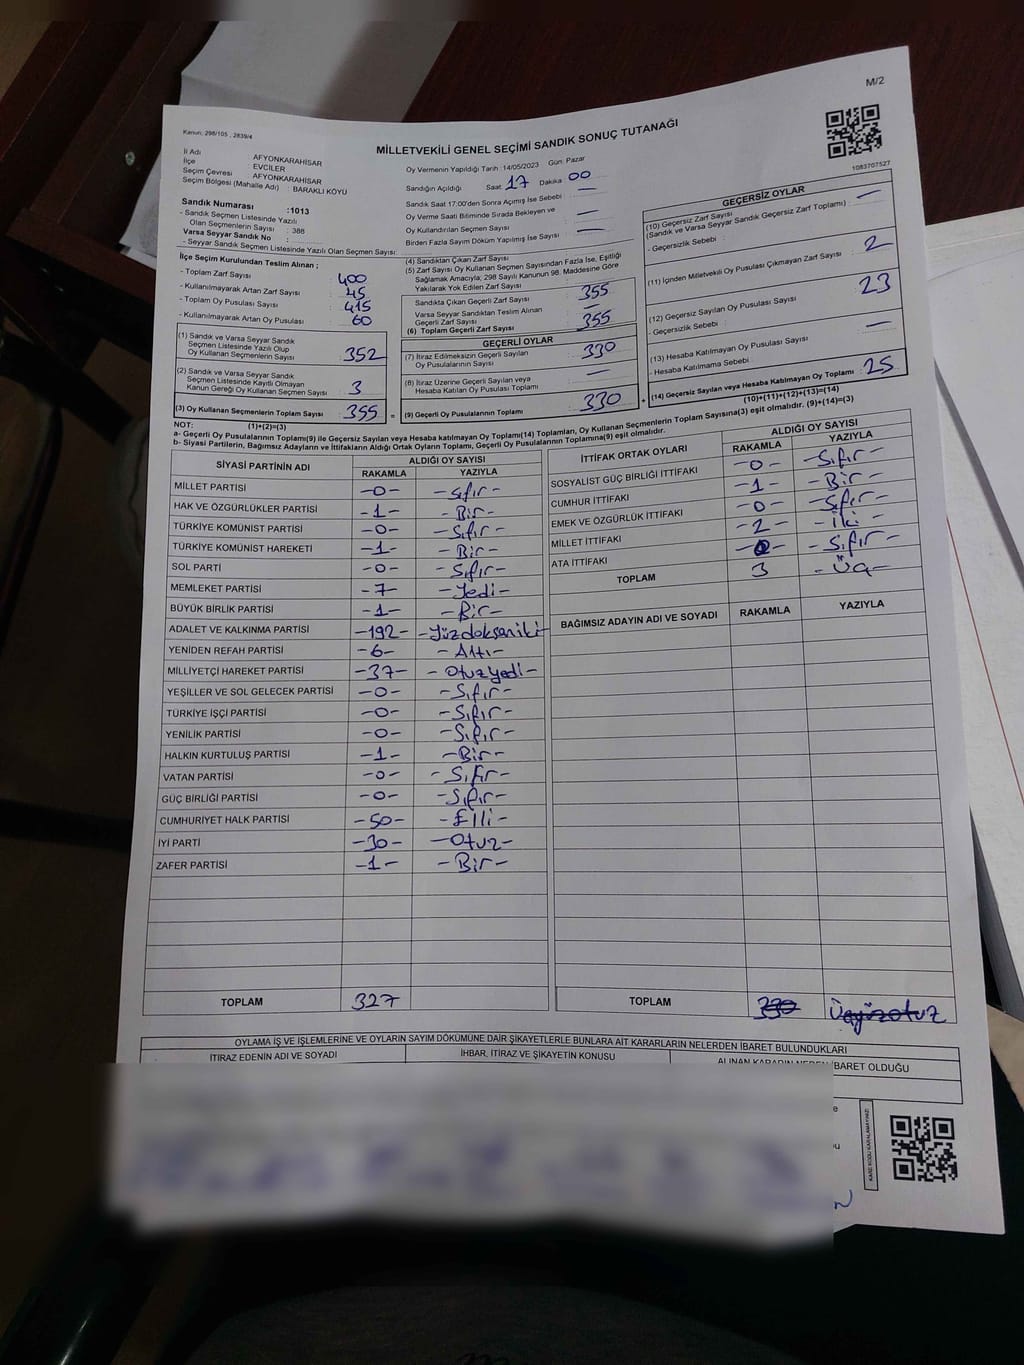 M/2
Kanun: 298/105 , 2839/4
MİLLETVEKİLİ GENEL SEÇİMİ SANDIK SONUÇ TUTANAĞI
1083707527
İl Adı : AFYONKARAHİSAR
İlçe : EVCİLER
Seçim Çevresi : AFYONKARAHİSAR
Seçim Bölgesi (Mahalle Adı) : BARAKLI KÖYÜ
Sandık Numarası :1013
- Sandık Seçmen Listesinde Yazılı
Olan Seçmenlerin Sayısı : 388
Varsa Seyyar Sandık No :
- Seyyar Sandık Seçmen Listesinde Yazılı Olan Seçmen Sayısı:
Oy Vermenin Yapıldığı Tarih : 14/05/2023 Gün: Pazar
Sandığın Açıldığı Saat 17 Dakika 00
Sandık Saat 17:00'den Sonra Açılmış İse Sebebi : —
Oy Verme Saati Bitiminde Sırada Bekleyen ve
Oy Kullandırılan Seçmen Sayısı : —
Birden Fazla Sayım Döküm Yapılmış İse Sayısı : —
İlçe Seçim Kurulundan Teslim Alınan ;
- Toplam Zarf Sayısı : 400
- Kullanılmayarak Artan Zarf Sayısı : 45
- Toplam Oy Pusulası Sayısı : 415
- Kullanılmayarak Artan Oy Pusulası : 60
(1) Sandık ve Varsa Seyyar Sandık
Seçmen Listesinde Yazılı Olup
Oy Kullanan Seçmenlerin Sayısı : 352
(2) Sandık ve Varsa Seyyar Sandık
Seçmen Listesinde Kayıtlı Olmayan
Kanun Gereği Oy Kullanan Seçmen Sayısı : 3
(3) Oy Kullanan Seçmenlerin Toplam Sayısı : 355 =
(1)+(2)=(3)
(4) Sandıktan Çıkan Zarf Sayısı
(5) Zarf Sayısı Oy Kullanan Seçmen Sayısından Fazla İse, Eşitliği
Sağlamak Amacıyla; 298 Sayılı Kanunun 98. Maddesine Göre
Yakılarak Yok Edilen Zarf Sayısı :
Sandıkta Çıkan Geçerli Zarf Sayısı : 355
Varsa Seyyar Sandıktan Teslim Alınan
Geçerli Zarf Sayısı : —
(6) Toplam Geçerli Zarf Sayısı : 355
GEÇERLİ OYLAR
(7) İtiraz Edilmeksizin Geçerli Sayılan
Oy Pusulalarının Sayısı : 330
(8) İtiraz Üzerine Geçerli Sayılan veya
Hesaba Katılan Oy Pusulası Toplamı : —
(9) Geçerli Oy Pusulalarının Toplamı : 330 +
GEÇERSİZ OYLAR
(10) Geçersiz Zarf Sayısı
(Sandık ve Varsa Seyyar Sandık Geçersiz Zarf Toplamı) : —
- Geçersizlik Sebebi :
(11) İçinden Milletvekili Oy Pusulası Çıkmayan Zarf Sayısı : 2
(12) Geçersiz Sayılan Oy Pusulası Sayısı : 23
- Geçersizlik Sebebi :
(13) Hesaba Katılmayan Oy Pusulası Sayısı : —
- Hesaba Katılmama Sebebi :
(14) Geçersiz Sayılan veya Hesaba Katılmayan Oy Toplamı : 25
(10)+(11)+(12)+(13)=(14)
NOT:
a- Geçerli Oy Pusulalarının Toplamı(9) ile Geçersiz Sayılan veya Hesaba katılmayan Oy Toplamı(14) Toplamları, Oy Kullanan Seçmenlerin Toplam Sayısına(3) eşit olmalıdır. (9)+(14)=(3)
b- Siyasi Partilerin, Bağımsız Adayların ve İttifakların Aldığı Ortak Oyların Toplamı, Geçerli Oy Pusulalarının Toplamına(9) eşit olmalıdır.
SİYASİ PARTİNİN ADI ALDIĞI OY SAYISI
RAKAMLA YAZIYLA
MİLLET PARTİSİ -0- -Sıfır-
HAK VE ÖZGÜRLÜKLER PARTİSİ -1- -Bir-
TÜRKİYE KOMÜNİST PARTİSİ -0- -Sıfır-
TÜRKİYE KOMÜNİST HAREKETİ -1- -Bir-
SOL PARTİ -0- -Sıfır-
MEMLEKET PARTİSİ -7- -Yedi-
BÜYÜK BİRLİK PARTİSİ -1- -Bir-
ADALET VE KALKINMA PARTİSİ -192- -Yüzdoksaniki-
YENİDEN REFAH PARTİSİ -6- -Altı-
MİLLİYETÇİ HAREKET PARTİSİ -37- -Otuzyedi-
YEŞİLLER VE SOL GELECEK PARTİSİ -0- -Sıfır-
TÜRKİYE İŞÇİ PARTİSİ -0- -Sıfır-
YENİLİK PARTİSİ -0- -Sıfır-
HALKIN KURTULUŞ PARTİSİ -1- -Bir-
VATAN PARTİSİ -0- -Sıfır-
GÜÇ BİRLİĞİ PARTİSİ -0- -Sıfır-
CUMHURİYET HALK PARTİSİ -50- -Elli-
İYİ PARTİ -30- -Otuz-
ZAFER PARTİSİ -1- -Bir-
TOPLAM 327
İTTİFAK ORTAK OYLARI ALDIĞI OY SAYISI
RAKAMLA YAZIYLA
SOSYALİST GÜÇ BİRLİĞİ İTTİFAKI -0- -Sıfır-
CUMHUR İTTİFAKI -1- -Bir-
EMEK VE ÖZGÜRLÜK İTTİFAKI -0- -Sıfır-
MİLLET İTTİFAKI -2- -İki-
ATA İTTİFAKI -0- -Sıfır-
TOPLAM 3 -Üç-
BAĞIMSIZ ADAYIN ADI VE SOYADI RAKAMLA YAZIYLA
TOPLAM 330 Üçyüzotuz
OYLAMA İŞ VE İŞLEMLERİNE VE OYLARIN SAYIM DÖKÜMÜNE DAİR ŞİKAYETLERLE BUNLARA AİT KARARLARIN NELERDEN İBARET BULUNDUKLARI
İTİRAZ EDENİN ADI VE SOYADI İHBAR, İTİRAZ VE ŞİKAYETİN KONUSU ALINAN KARARIN NEDEN İBARET OLDUĞU
KARE KODU KARALAMAYINIZ!